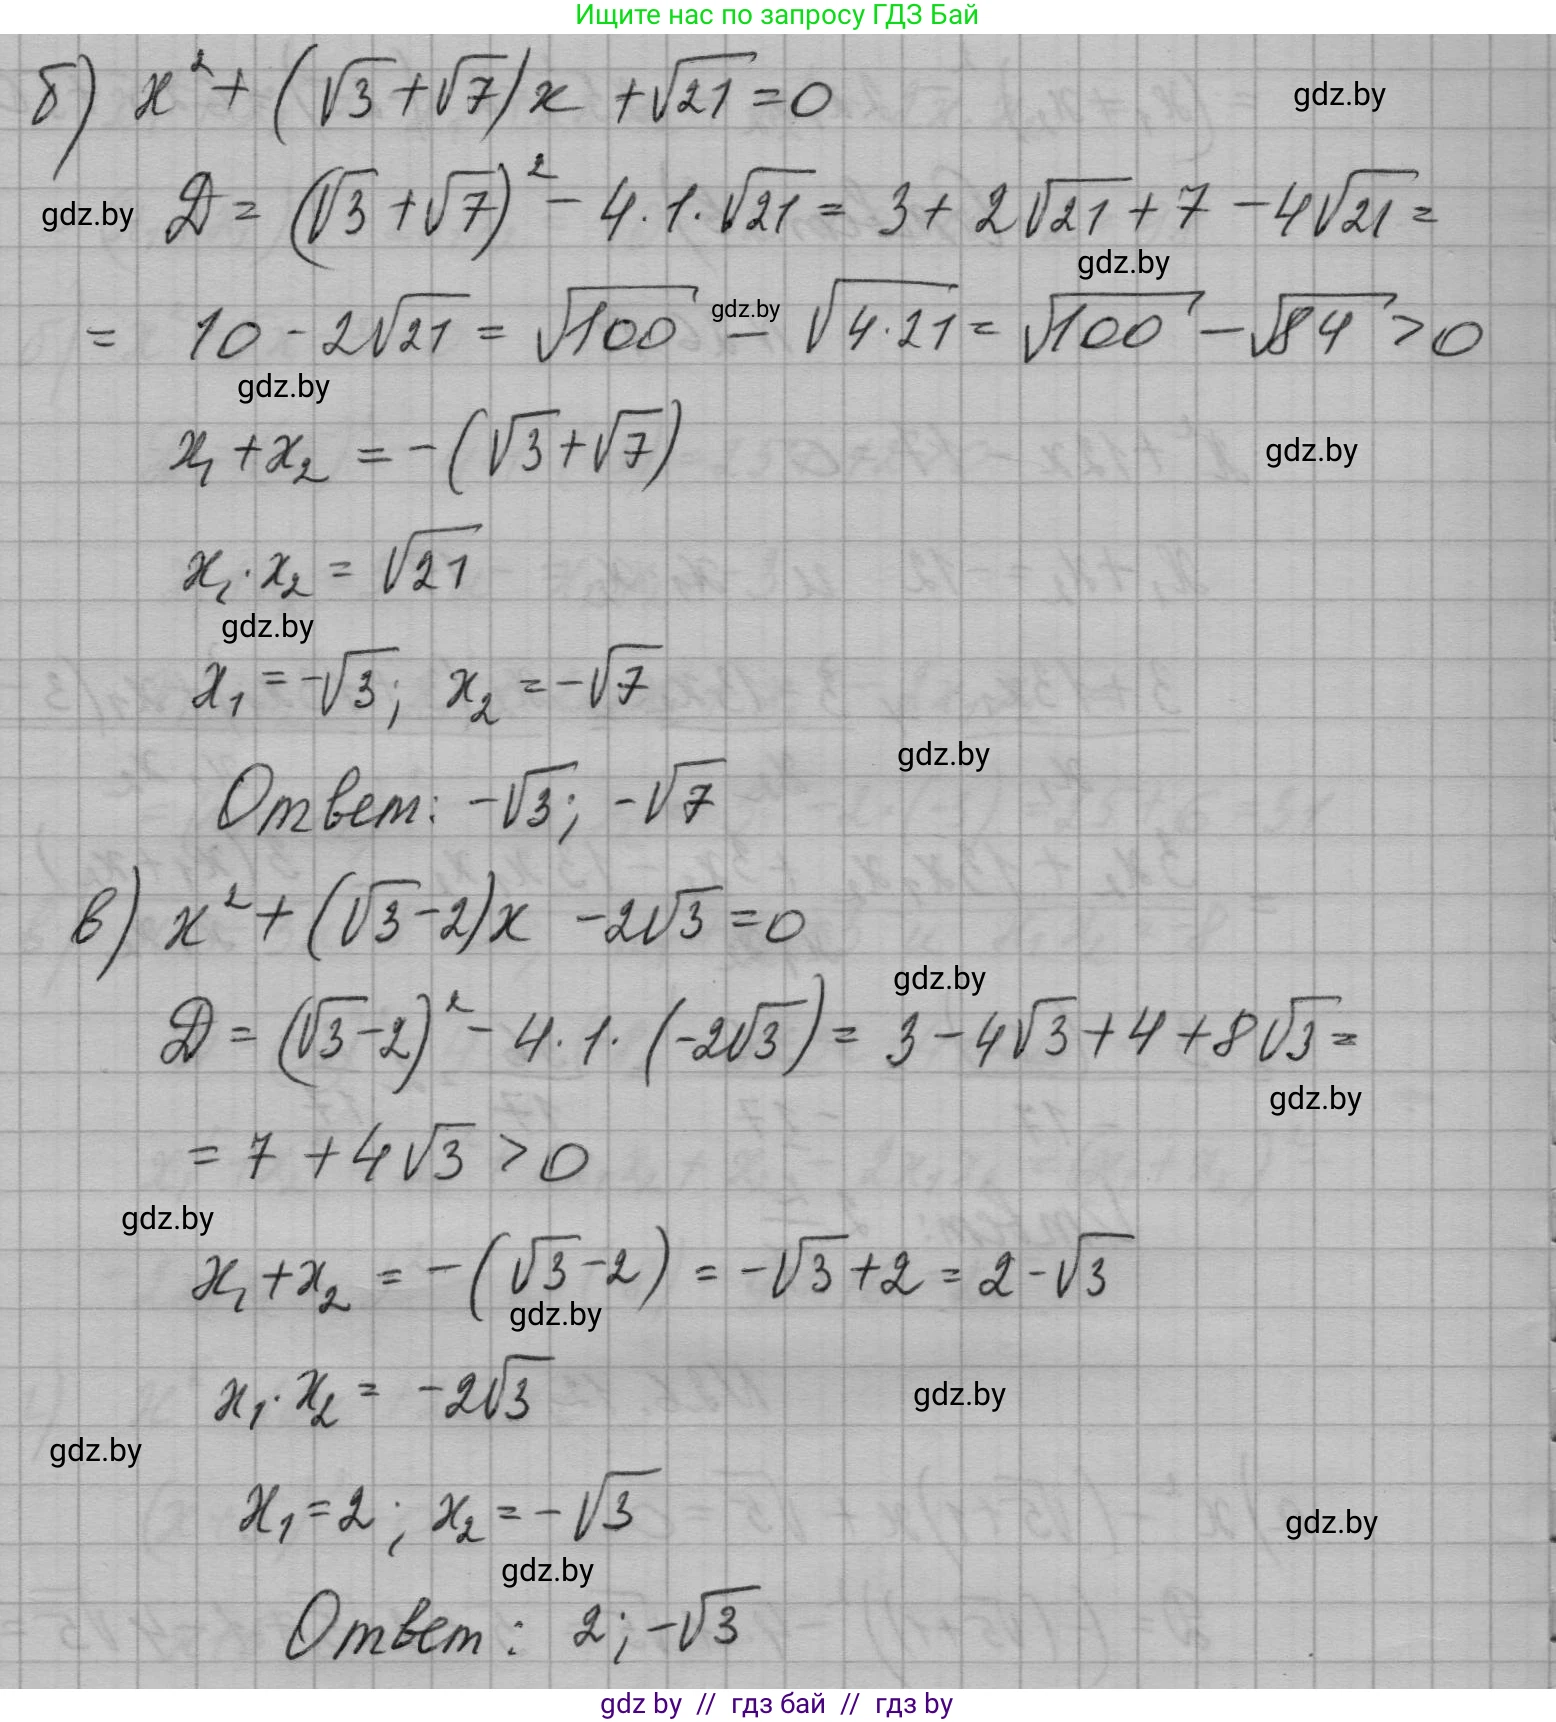 Ищите нас по запросу ГДЗ Бай
б) x² + (√3 + √7)x + √21 = 0
gdz.by
D = (√3 + √7)² - 4·1·√21 = 3 + 2√21 + 7 - 4√21 =
gdz.by
gdz.by
= 10 - 2√21 = √100 - √4·21 = √100 - √84 > 0
gdz.by
gdz.by
x₁ + x₂ = -(√3 + √7)
gdz.by
x₁·x₂ = √21
gdz.by
x₁ = -√3; x₂ = -√7
gdz.by
Ответ: -√3; -√7
в) x² + (√3 - 2)x - 2√3 = 0
gdz.by
D = (√3 - 2)² - 4·1·(-2√3) = 3 - 4√3 + 4 + 8√3 =
gdz.by
= 7 + 4√3 > 0
gdz.by
x₁ + x₂ = -(√3 - 2) = -√3 + 2 = 2 - √3
gdz.by
x₁·x₂ = -2√3
gdz.by
gdz.by
x₁ = 2; x₂ = -√3
gdz.by
gdz.by
Ответ: 2; -√3
gdz by // гдз бай // гдз by